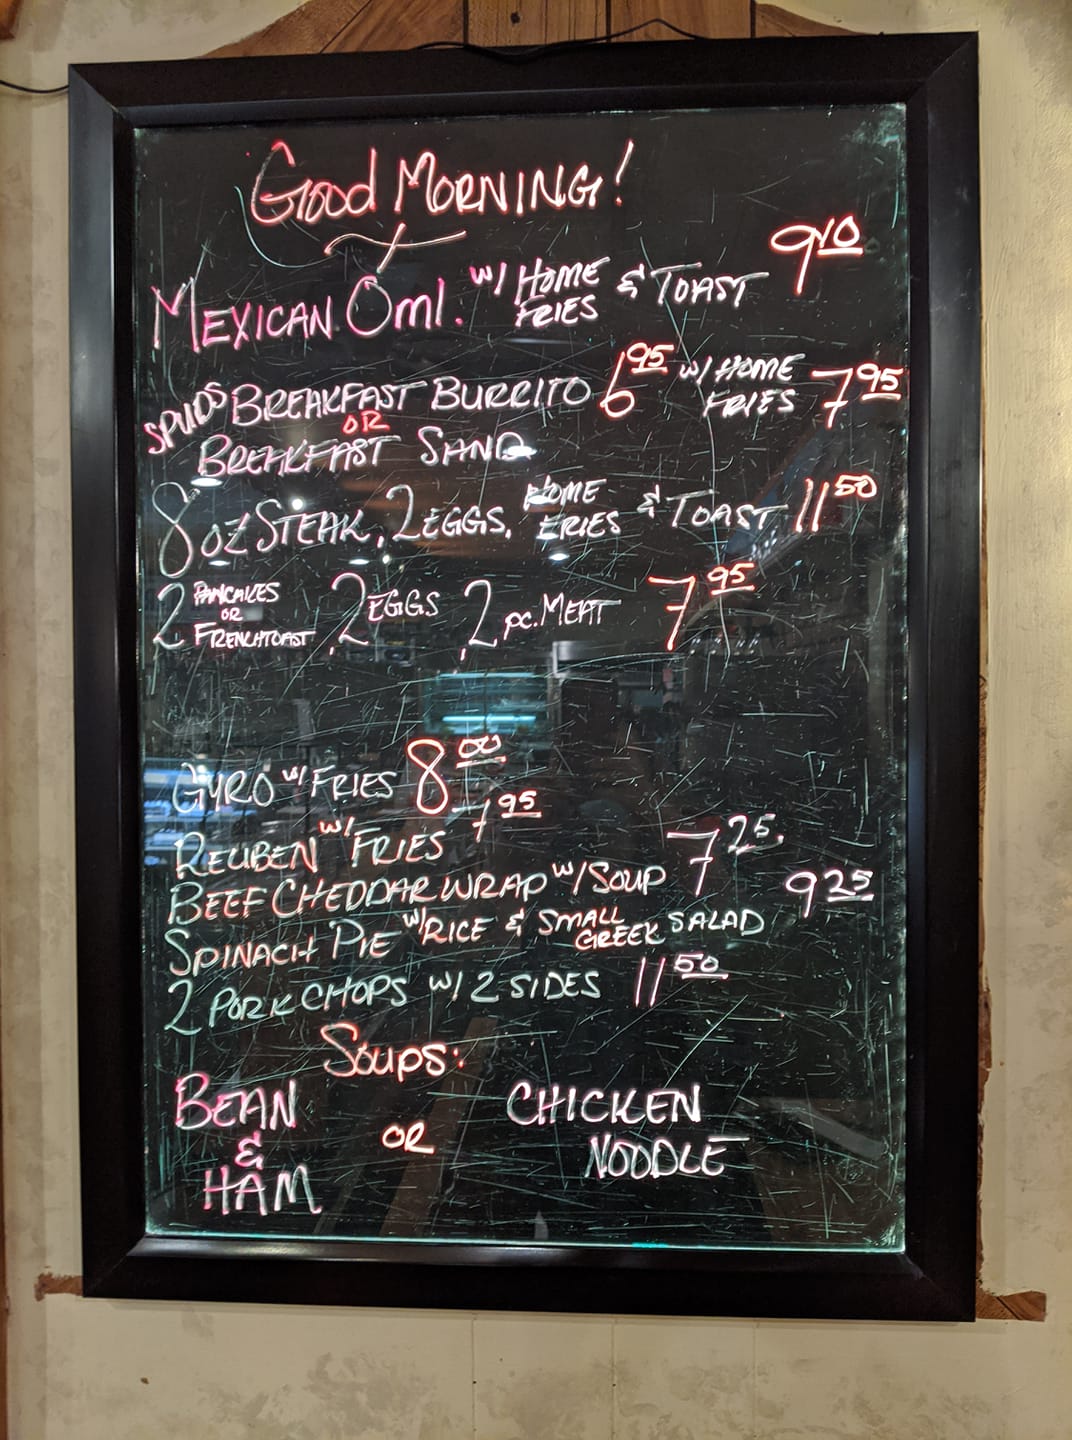 Good Morning!
Mexican Oml. w/ Home Fries & Toast 9.10
Spuds Breakfast Burrito 6.95 w/ Home Fries 7.95
or
Breakfast Sand
8 oz Steak, 2 Eggs, Home Fries & Toast 11.50
2 Pancakes or Frenchtoast, 2 Eggs, 2 pc. Meat 7.95
Gyro w/ Fries 8.00
Reuben w/ Fries 7.95
Beef Cheddar Wrap w/ Soup 7.25.
Spinach Pie w/ Rice & Small Greek Salad 9.25
2 Pork Chops w/ 2 Sides 11.50
Soups:
Bean & Ham or Chicken Noodle